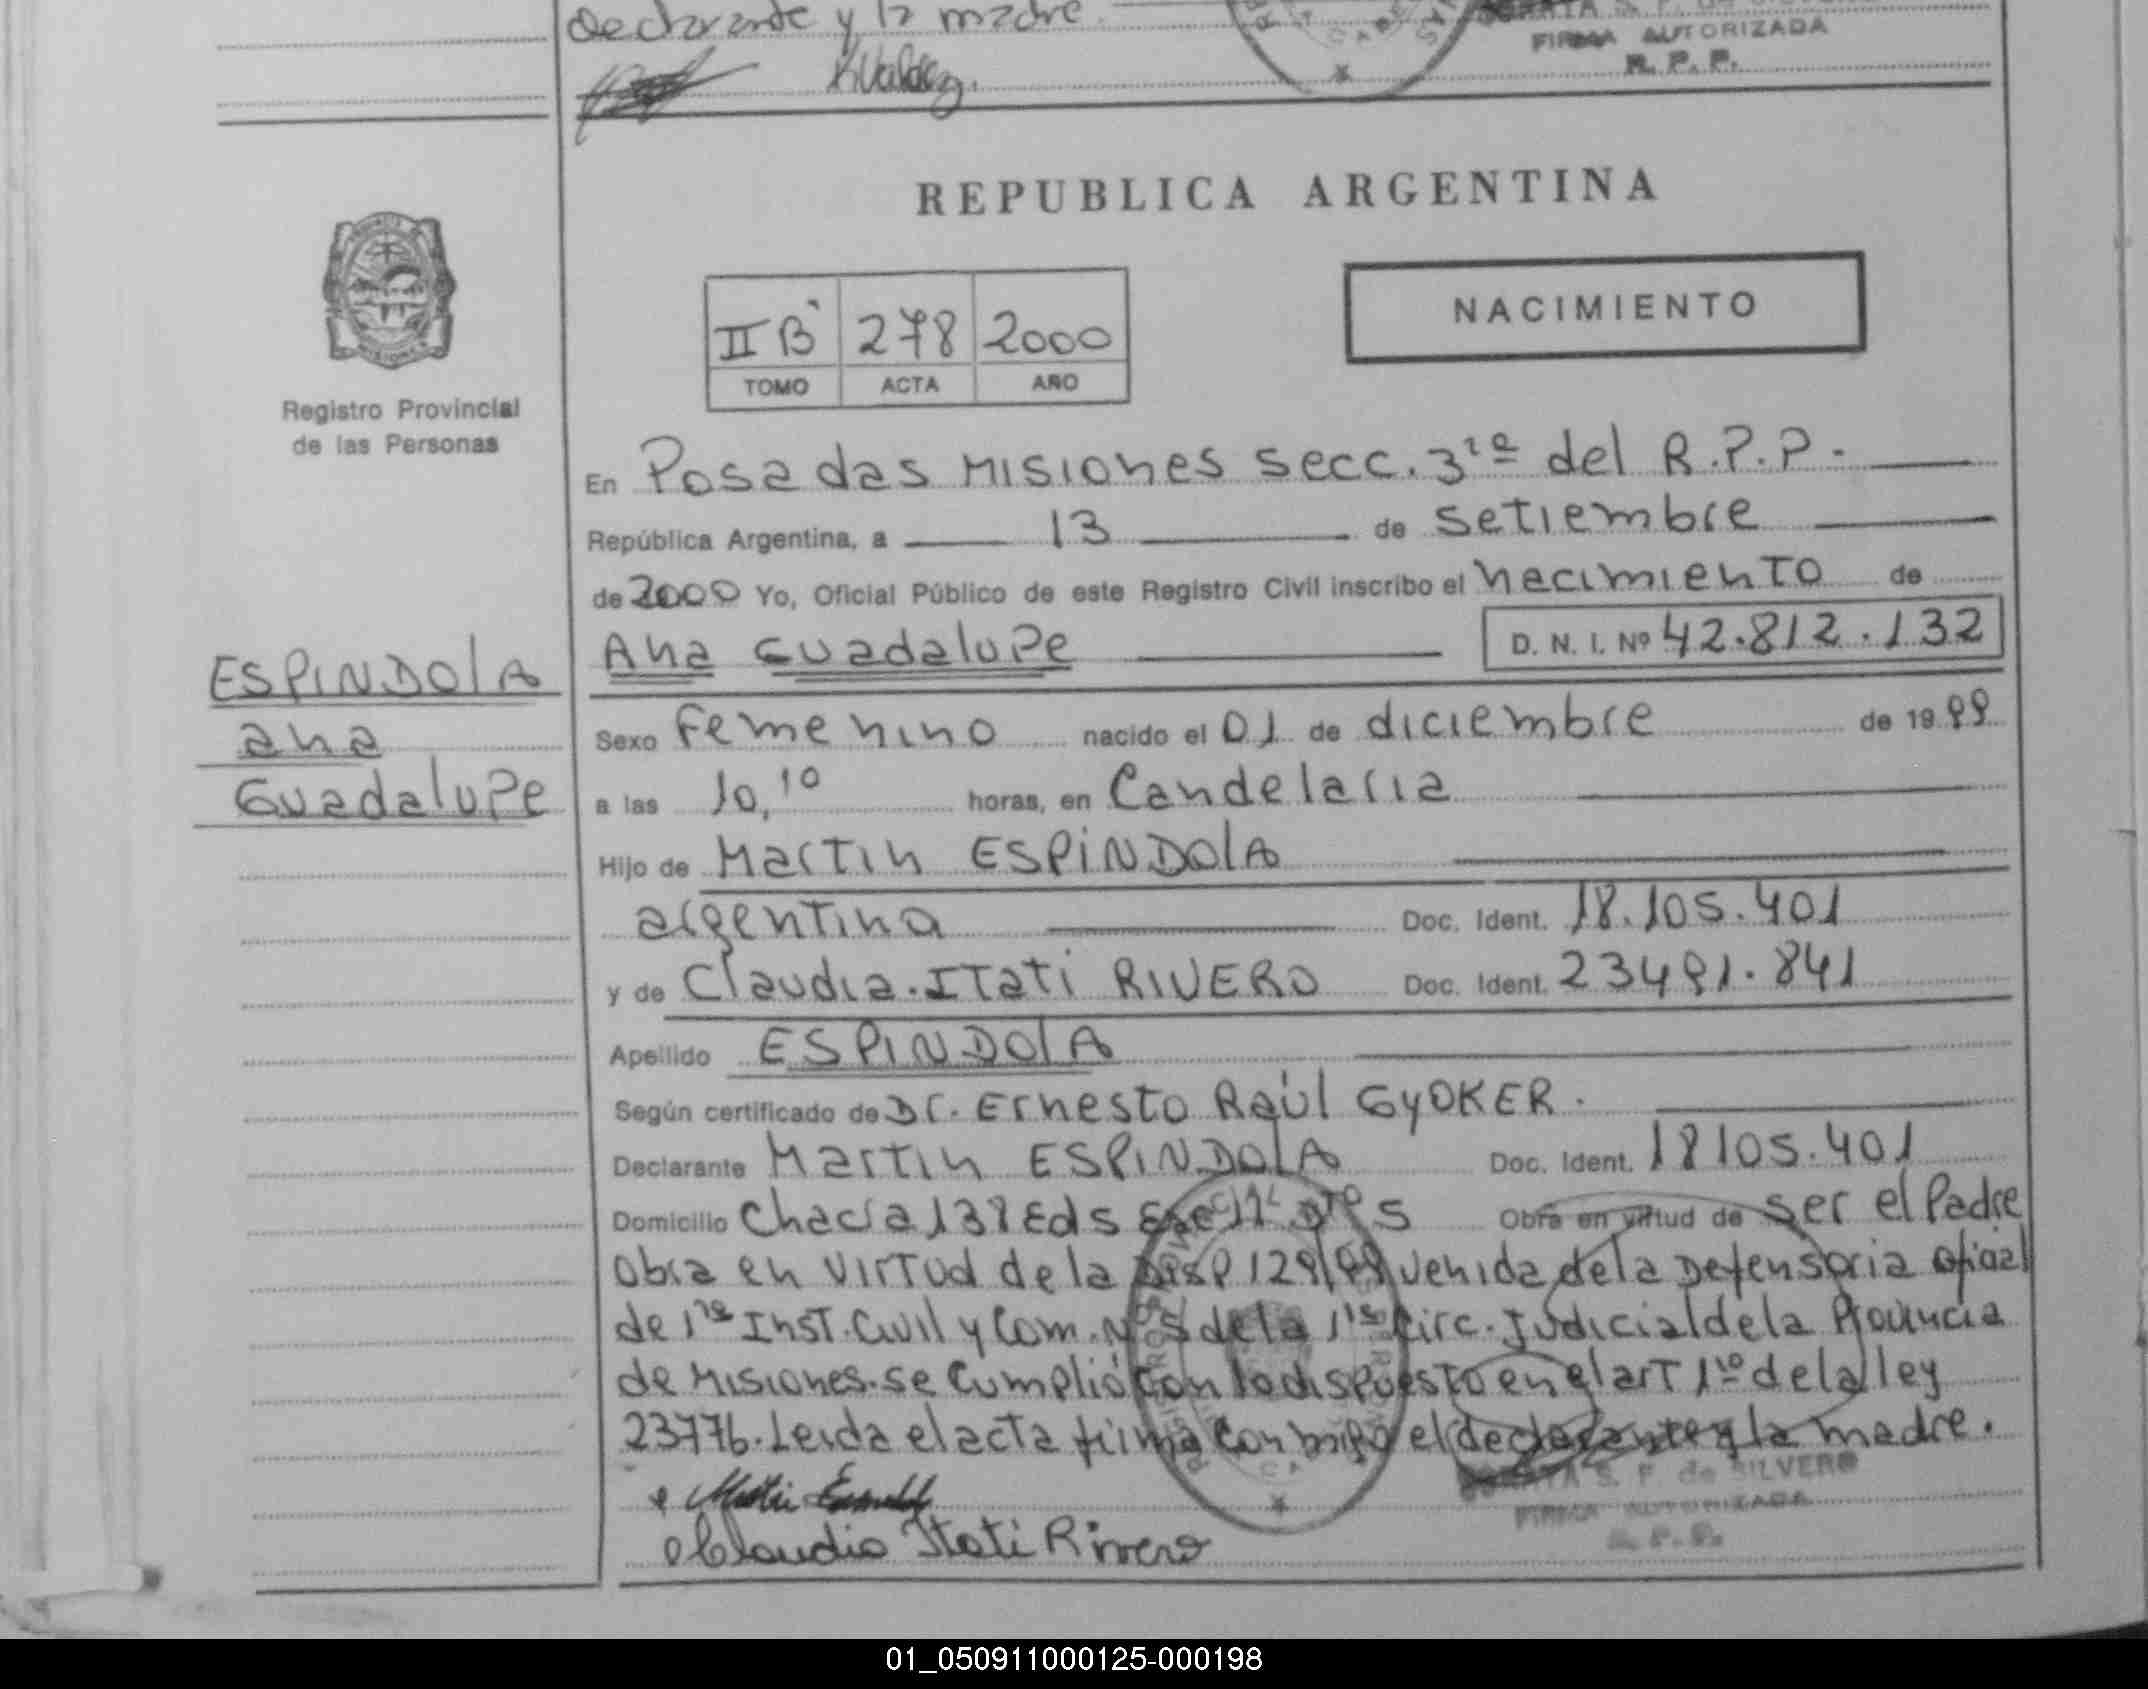 declarante y la madre.
KValdez.
FIRMA AUTORIZADA
R. P. P.
REPUBLICA ARGENTINA
NACIMIENTO
II B 278 2000
TOMO ACTA AÑO
Registro Provincial
de las Personas
En Posadas Misiones secc. 3ra del R.P.P.
República Argentina, a 13 de setiembre
de 2000 Yo, Oficial Público de este Registro Civil inscribo el nacimiento de
Ana Guadalupe D. N. I. Nº 42.812.132
ESPINDOLA
ana
Guadalupe
Sexo Femenino nacido el 01 de diciembre de 1999
a las 10,10 horas, en Candelaria
Hijo de Martin ESPINDOLA
argentina Doc. Ident. 18.105.401
y de Claudia Itati RIVERO Doc. Ident. 23491.841
Apellido ESPINDOLA
Según certificado de Dr. Ernesto Raúl GYOKER.
Declarante Martin ESPINDOLA Doc. Ident. 18105.401
Domicilio Chacra 138 Obra en virtud de ser el Padre
Obra en virtud de la Disp 129/99 venida de la Defensoria oficial
de 1ra Inst. Civil y Com. Nº 5 de la 1ra Circ. Judicial de la Provincia
de Misiones. se cumplió con lo dispuesto en el art 1ro de la ley
23776. Leida el acta firma con migo el declarante y la madre.
S. F. de SILVERO
FIRMA AUTORIZADA
R. P. P.
Claudia Itati Rivero
01_050911000125-000198